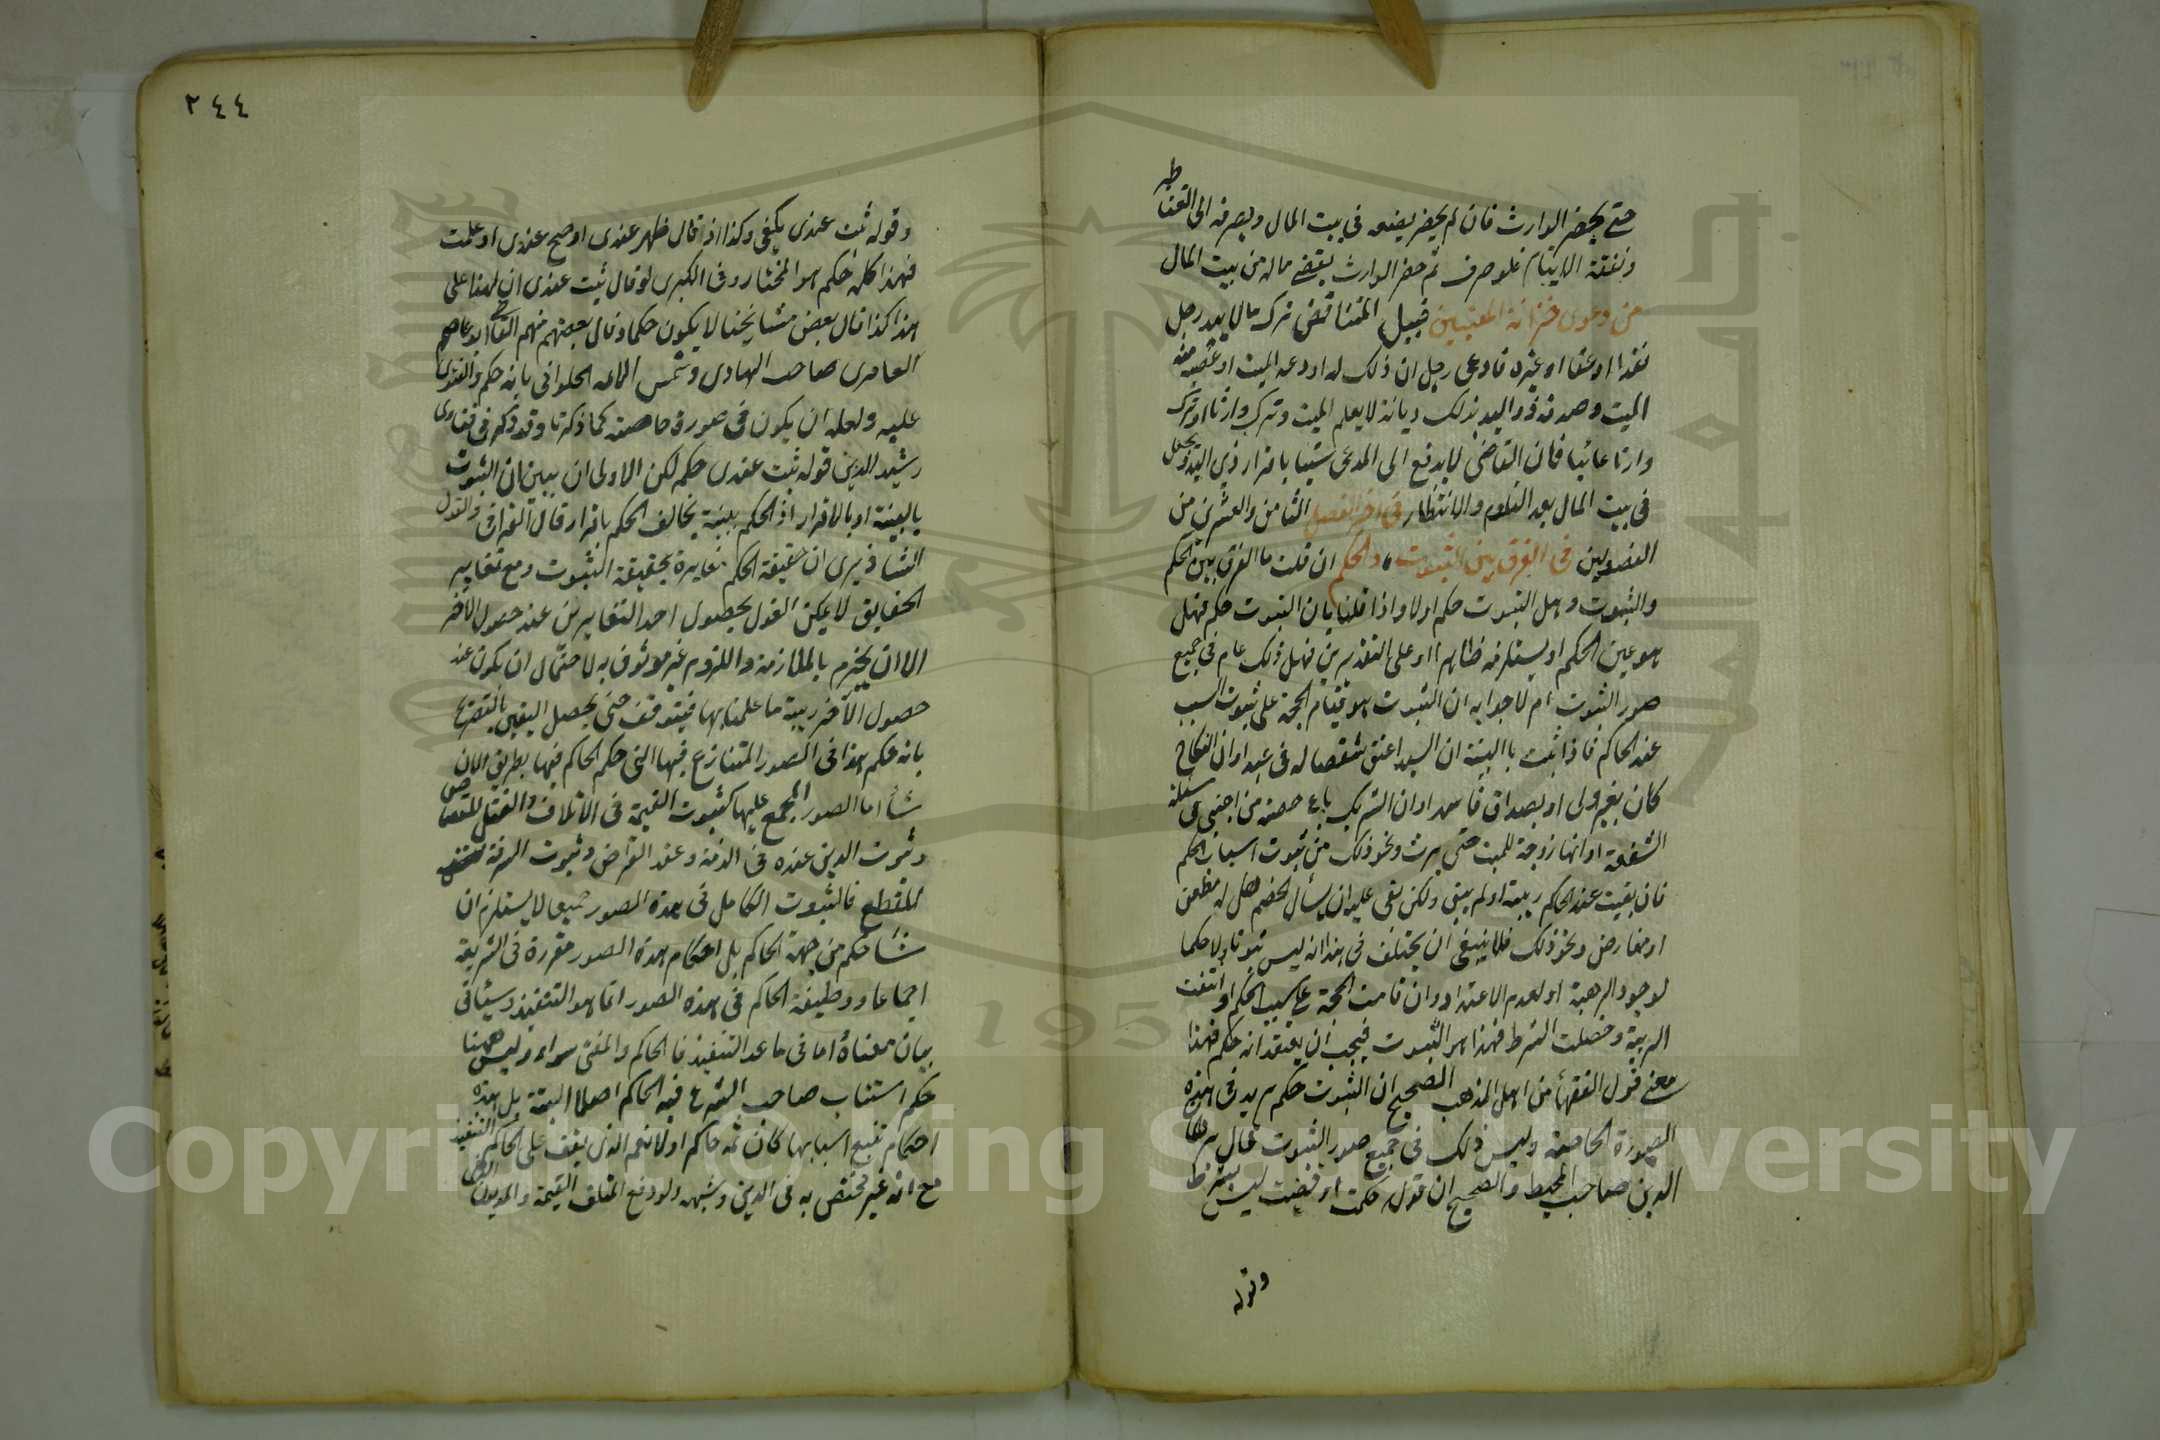 حتى يحضر الوارث فان لم يحضر يضعه في بيت المال ويصرفه الى القناطر
ونفقة الايتام فلو صرف ثم حضر الوارث يقضي ماله من بيت المال
من دعوى خزانة المفتيين قبيل المتناقض ترك مالا بيد رجل
نقدا او عقارا او غيره فادعى رجل ان ذلك له اودعه الميت او غصبه منه
الميت وصدقه ذو اليد بذلك ديانة لا يعلم الميت وترك وارثا او ترك
وارثا غائبا فان القاضي لا يدفع الى المدعي شيئا باقرار ذي اليد ويجعل
في بيت المال بعد التلوم والانتظار في اخر الفصل الثامن والعشرين من
الفصولين في الفرق بين الثبوت والحكم ان قلت ما الفرق بين الحكم
والثبوت وهل الثبوت حكم اولا واذا قلنا بان الثبوت حكم فهل
هو عين الحكم او يستلزمه ظاهرا وعلى التقديرين فهل ذلك عام في جميع
صور الثبوت ام لا جوابه ان الثبوت هو قيام الحجة على ثبوت السبب
عند الحاكم فاذا ثبت باالبينة ان السيد اعتق شقصا له في عبد او ان النكاح
كان بغير ولي او بصداق فاسد او ان الشريك باع حصته من اجنبي في مسئلة
الشفعة او انها زوجة للميت حتى ترث ونحو ذلك من ثبوت اسباب الحكم
فان بقيت عند الحاكم ريبة او لم يبق ولكن بقي عليه ان يسأل الخصم هل له مطعن
او معارض ونحو ذلك فلا ينبغي ان يختلف في هذا انه ليس ثبوتا ولا حكما
لوجود الريبة او لعدم الاعذار وان قامت الحجة على سبب الحكم وانتفت
الريبة وحصلت الشرط فهذا هو الثبوت فيجب ان يعتقد انه حكم فهذا
معنى قول الفقهأ من اهل المذهب الصحيح ان الثبوت حكم يريد في هذه
الصورة الخاصة وليس ذلك في جميع صور الثبوت قال برهان
الدين صاحب المحيط والصحيح ان قوله حكمت او قضيت ليس بشرط
وقوله
٢٤٤
وقوله ثبت عندي يكفي وكذا اذا قال ظهر عندي او صح عندي او علمت
فهذا كله حكم هو المختار وفي الكبرى لو قال ثبت عندي ان لهذا على
هذا كذا قال بعض مشايخنا لا يكون حكما وقال بعضهم منهم القاضي ابو عاصم
العامري صاحب الهادي وشمس الائمه الحلواني بانه حكم والفتوى
عليه ولعله ان يكون في صورة خاصة كما ذكرنا وقد ذكر في فتاوى
رشيد الدين قوله ثبت عندي حكم لكن الاولى ان يبين ان الثبوت
بالبينة او بالاقرار اذ الحكم ببينة يخالف الحكم باقرار قال القرافي والقول
الشاذ يرى ان حقيقة الحكم مغايرة بحقيقة الثبوت ومع تغاير
الحقايق لا يمكن القول بحصول احد المتغايرين عند حصول الاخر
الا ان يجزم بالملازمة واللزوم غير موثوق به لاحتمال ان يكون عند
حصول الاخر ريبة ما علمنا بها فيتوقف حتى يحصل اليقين بالتصريح
بانه حكم هذا في الصور المتنازع فيها التي حكم الحاكم فيها بطريق الان
شأ اما الصور المجمع عليها كثبوت القيمة في الاتلاف والقتل للقصاص
وثبوت الدين عنده في الذمة وعقد القراض وثبوت السرقة
للقطع فالثبوت الكامل في هذه الصور جميعا لا يستلزم ان
شأ حكم من جهة الحاكم بل احكام هذه الصور مقررة في الشريعة
اجماعا ووظيفة الحاكم في هذه الصور انما هو التنفيذ وسيأتي
بيان معناه اما في ما عدا التنفيذ فالحاكم والمفتي سواء وليس ههنا
حكم استناب صاحب الشرع فيه الحاكم اصلا البتة بل هذه
احكام تتبع اسبابها كان ثمه حاكم او لا نعم الذي يقف على الحاكم التنفيذ
مع انه غير مختص به في الدين وشبهه ولو دفع المتلف القيمة والمديون الدين